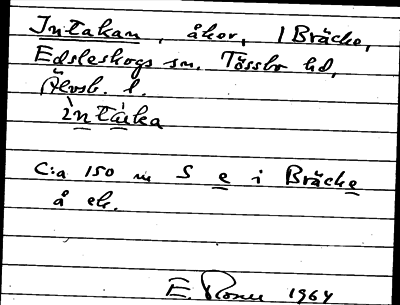 Intakan, åker, 1 Bräcke,
Edsleskogs sn. Tössbo hd,
Älvsb. l.
ìn tàka
C:a 150 m S e i Bräcke
å ek.
E. Rosm 1964